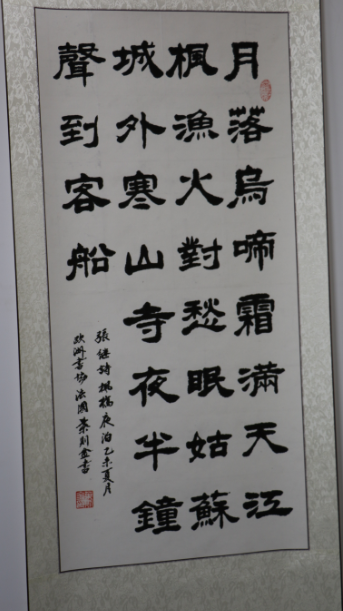 月落烏啼霜滿天江
楓漁火對愁眠姑蘇
城外寒山寺夜半鐘
聲到客船
張繼詩楓橋夜泊乙未夏月
欧洲书协法國葉剑金书